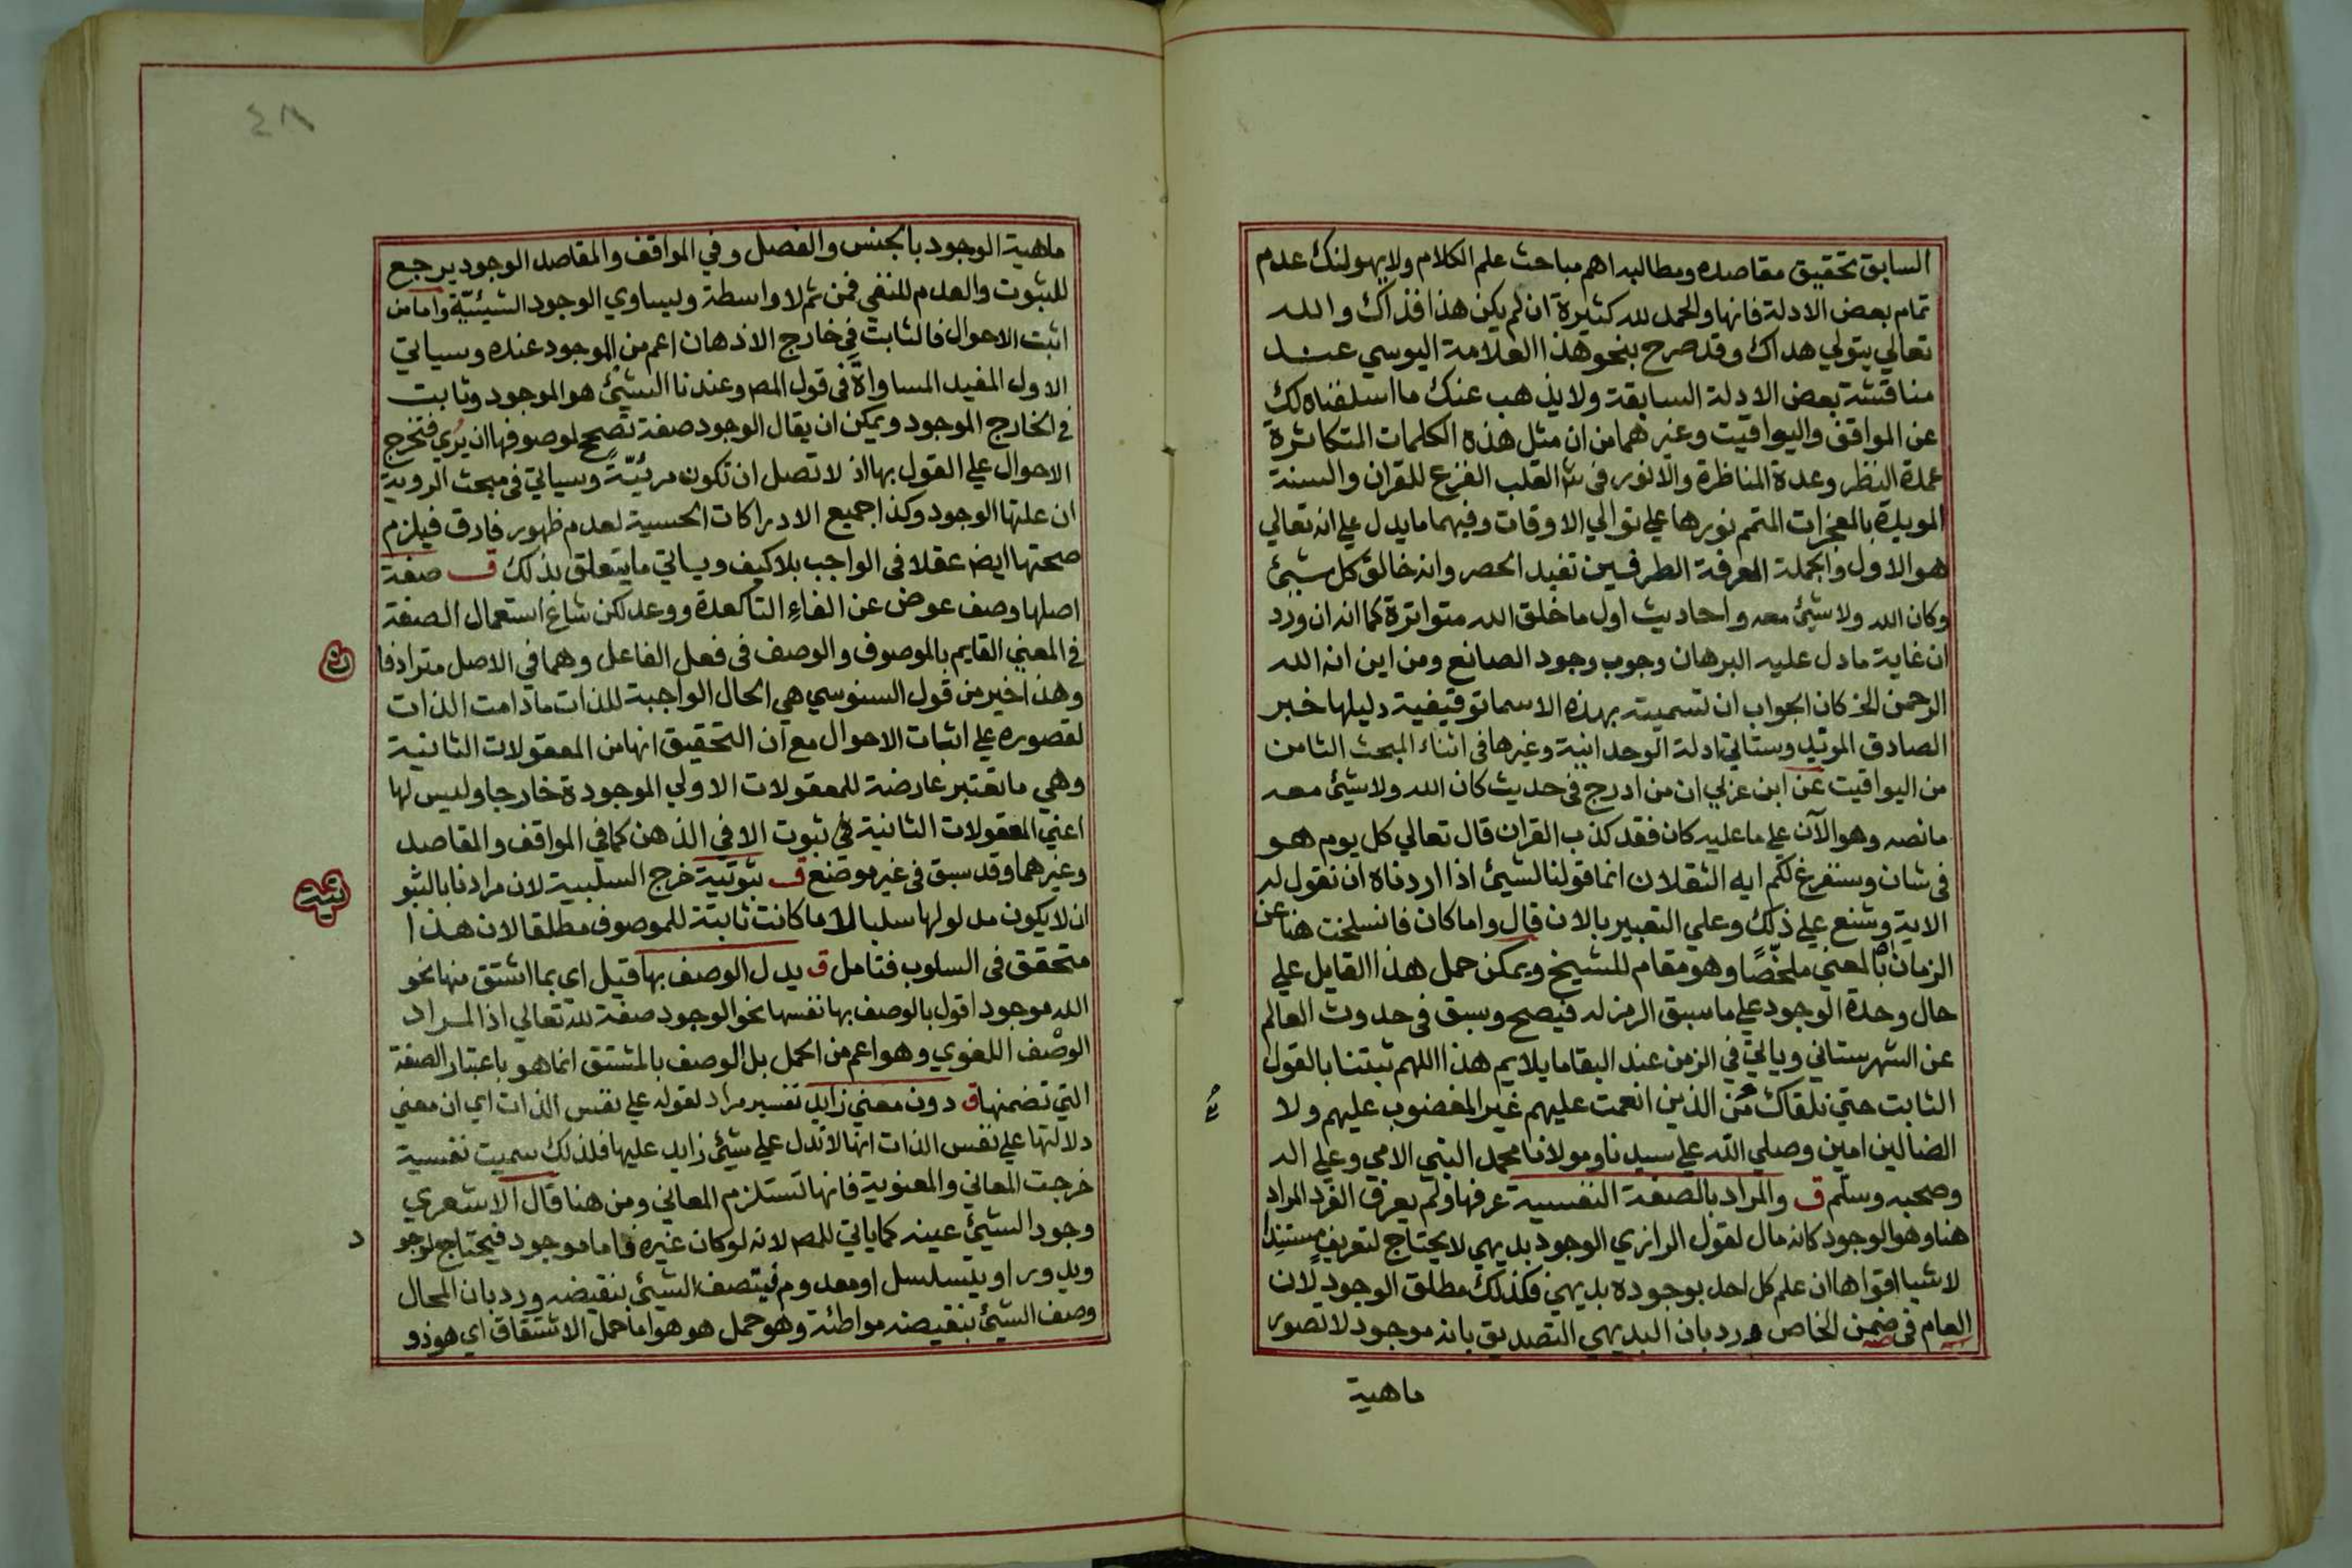 السابق تحقيق مقاصده ومطالبه اهم مباحث علم الكلام ولا يهولنك عدم
تمام بعض الادلة فانها والحمد لله كثيرة ان لم يكن هذا فذاك والله
تعالي يتولي هداك وقد صرح بنحو هذا العلامة اليوسي عند
مناقشة بعض الادلة السابقة ولا يذهب عنك ما اسلفناه لك
عن المواقف واليواقيت وغيرهما من ان مثل هذه الكلمات المتكاثرة
عمدة النظر وعدة المناظرة والانور في القلب الفزع للقران والسنة
المويدة بالمعجزات المتمم نورها علي توالي الاوقات وفيهما ما يدل علي انه تعالي
هو الاول والجملة المعرفة الطرفين تفيد الحصر وانه خالق كل شيئ
وكان الله ولا شيئ معه واحاديث اول ما خلق الله متواترة كما انه ان ورد
ان غاية ما دل عليه البرهان وجوب وجود الصانع ومن اين انه الله
الرحمن الخ كان الجواب ان تسميته بهذه الاسما توقيفية دليلها خبر
الصادق المويد وستاتي ادلة الوحدانية وغيرها في اثناء المبحث الثامن
من اليواقيت عن ابن عربي ان من ادرج في حديث كان الله ولا شيئ معه
ما نصه وهو الآن علي ما عليه كان فقد كذب القران قال تعالي كل يوم هو
في شان وسنفرغ لكم ايه الثقلان انما قولنا لشيئ اذا اردناه ان نقول له
الاية وشنع علي ذلك وعلي التعبير بالان قال واما كان فانسلخت هنا عن
الزمان اه بالمعني ملخصًا وهو مقام للشيخ ويمكن حمل هذا القايل علي
حال وحدة الوجود علي ما سبق الرمز له فيصح وسبق في حدوث العالم
عن الشهرستاني وياتي في الزمن عند البقا ما يلايم هذا اللهم ثبتنا بالقول
الثابت حتي نلقاك من الذين انعمت عليهم غير المغضوب عليهم ولا
الضالين امين وصلي الله علي سيدنا ومولانا محمد النبي الامي وعلي اله
وصحبه وسلم ق والمراد بالصفة النفسية عرفها ولم يعرف الفرد المراد
هنا وهو الوجود كانه مال لقول الرازي الوجود بديهي لا يحتاج لتعريف مستندا
لاشيا اقواها ان علم كل احد بوجوده بديهي فكذلك مطلق الوجود لان
العام في ضمن الخاص ورد بان البديهي التصديق بانه موجود لا تصور
ماهية
٤٨
ماهية الوجود بالجنس والفصل وفي المواقف والمقاصد الوجود يرجع
للثبوت والعدم للنفي فمن ثم لا واسطة ويساوي الوجود الشيئيّة واما من
اثبت الاحوال فالثابت في خارج الاذهان اعم من الموجود عنده وسياتي
الاول المفيد المساواة في قول المص وعندنا الشيئ هو الموجود وثابت
في الخارج الموجود ويمكن ان يقال الوجود صفة تصحح لموصوفها ان يُري فتخرج
الاحوال علي القول بها اذ لا تصل ان تكون مرئيّة وسياتي في مبحث الروية
ان علتها الوجود وكذا جميع الادراكات الحسية لعدم ظهور فارق فيلزم
صحتها ايض عقلا في الواجب بلا كيف وياتي ما يتعلق بذلك ق صفة
اصلها وصف عوض عن الفاءِ التا كعدة ووعد لكن شاع استعمال الصفة
في المعني القايم بالموصوف والوصف في فعل الفاعل وهما في الاصل مترادفا
ن
وهذا خير من قول السنوسي هي الحال الواجبة للذات ما دامت الذات
لقصوره علي اثبات الاحوال مع ان التحقيق انها من المعقولات الثانية
وهي ما تعتبر عارضة للمعقولات الاولي الموجودة خارجا وليس لها
اعني المعقولات الثانية في ثبوت الا في الذهن كما في المواقف والمقاصد
وغيرهما وقد سبق في غير موضع ق ثبوتية خرج السلبية لان مرادنا بالثبو
تية
ان لا يكون مدلولها سلبا لا ما كانت ثابتة للموصوف مطلقا لان هذا
متحقق في السلوب فتامل ق يدل الوصف بها قيل اي بما اشتق منها نحو
الله موجود اقول بالوصف بها نفسها نحو الوجود صفة لله تعالي اذ المراد
الوصف اللغوي وهو اعم من الحمل بل الوصف بالمشتق انما هو باعتبار الصفة
التي تضمنها ق دون معني زايد تفسير مراد لقوله علي نفس الذات اي ان معني
دلالتها علي نفس الذات انها لا تدل علي شيئ زايد عليها فلذلك سميت نفسية
خرجت المعاني والمعنوية فانها تستلزم المعاني ومن هنا قال الاشعري
وجود الشيئ عينه كما ياتي للمص لانه لو كان غيره فاما موجود فيحتاج لوجو
د
ويدور او يتسلسل او معدوم فيتصف الشيئ بنقيضه ورد بان المحال
وصف الشيئ بنقيضه مواطئة وهو حمل هو هو اما حمل الاشتقاق اي هو ذو